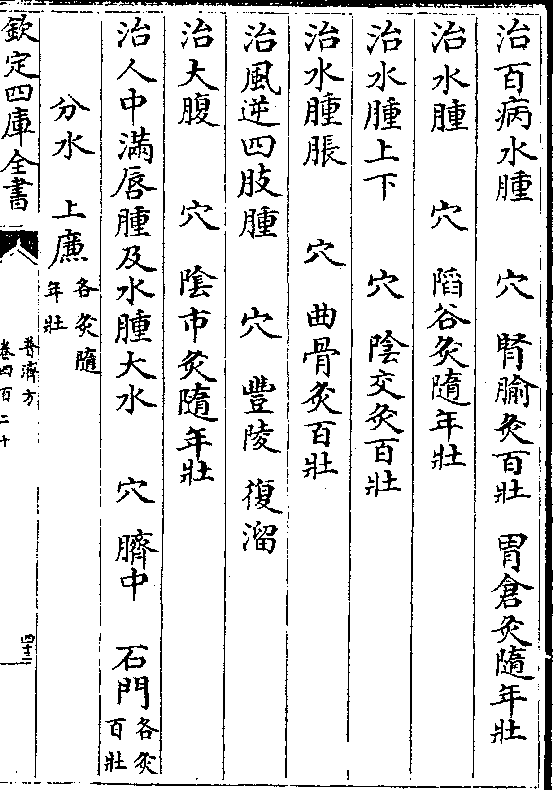 治百病水腫　穴　腎腧灸百壯　胃倉灸隨年壯
治水腫　穴　陷谷灸隨年壯
治水腫上下　穴　陰交灸百壯
治水腫脹　穴　曲骨灸百壯
治風逆四肢腫　穴　豐陵　復溜
治大腹　穴　陰市灸隨年壯
治人中滿唇腫及水腫大水　穴　臍中　石門各灸百壯
分水　上廉各灸隨年壯
欽定四庫全書
普濟方
卷四百二十
四十二